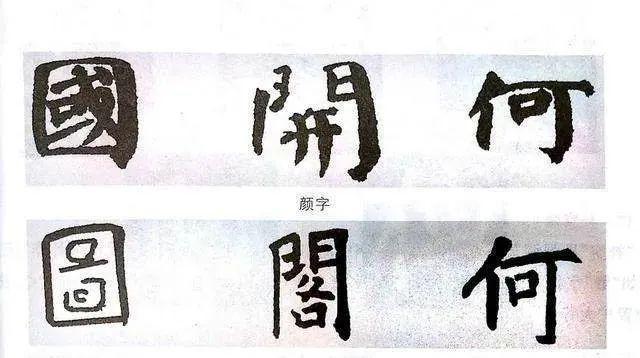 國 開 何
颜字
圖 閣 何